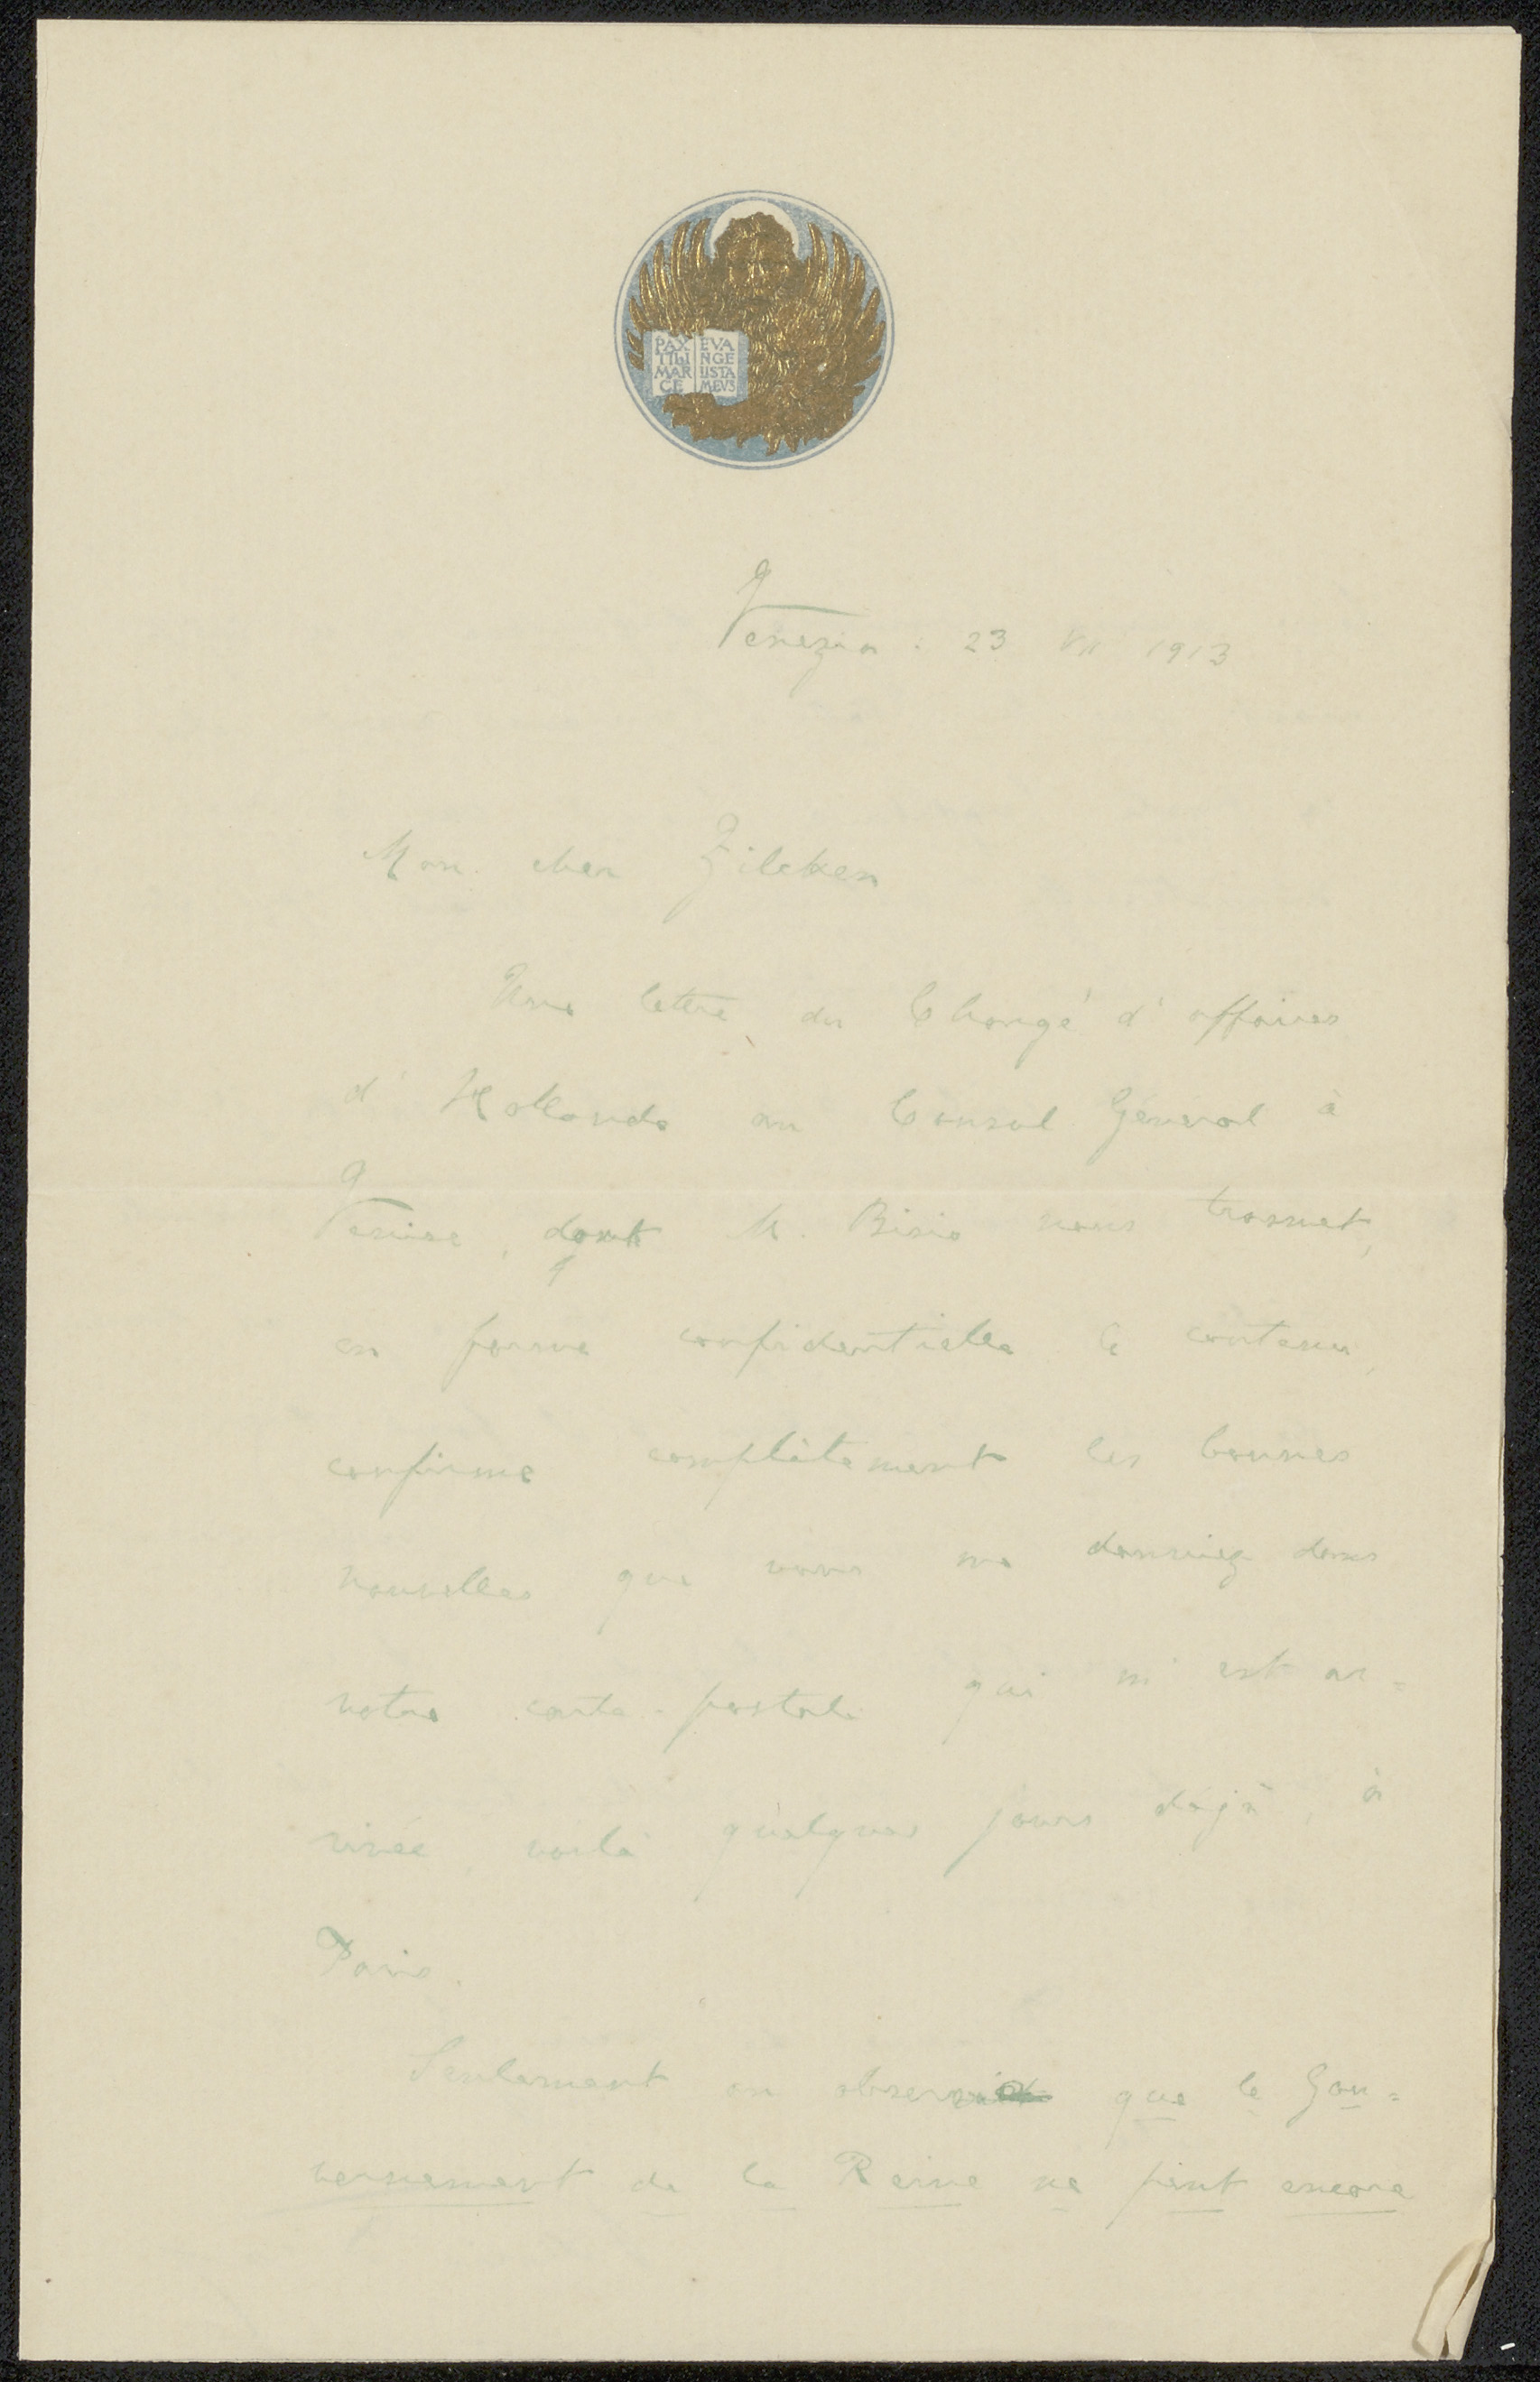 PAX EVA
TIBI NGE
MAR LISTA
CE MEVS
Venezia . 23 VII 1913
Mon cher Zilcken
Une lettre du Chargé d'affaires
d'Hollande au Consul Général à
Venise, dont M. Bisio nous trasmet,
en forme confidentielle le contenu,
confirme complètement les bonnes
nouvelles que vous me donniez dans
votre carte-postale qui m'est ar=
rivée voilà quelques jours dejà, à
Paris.
Seulement on observe que le Gou=
vernement de la Reine ne peut encore